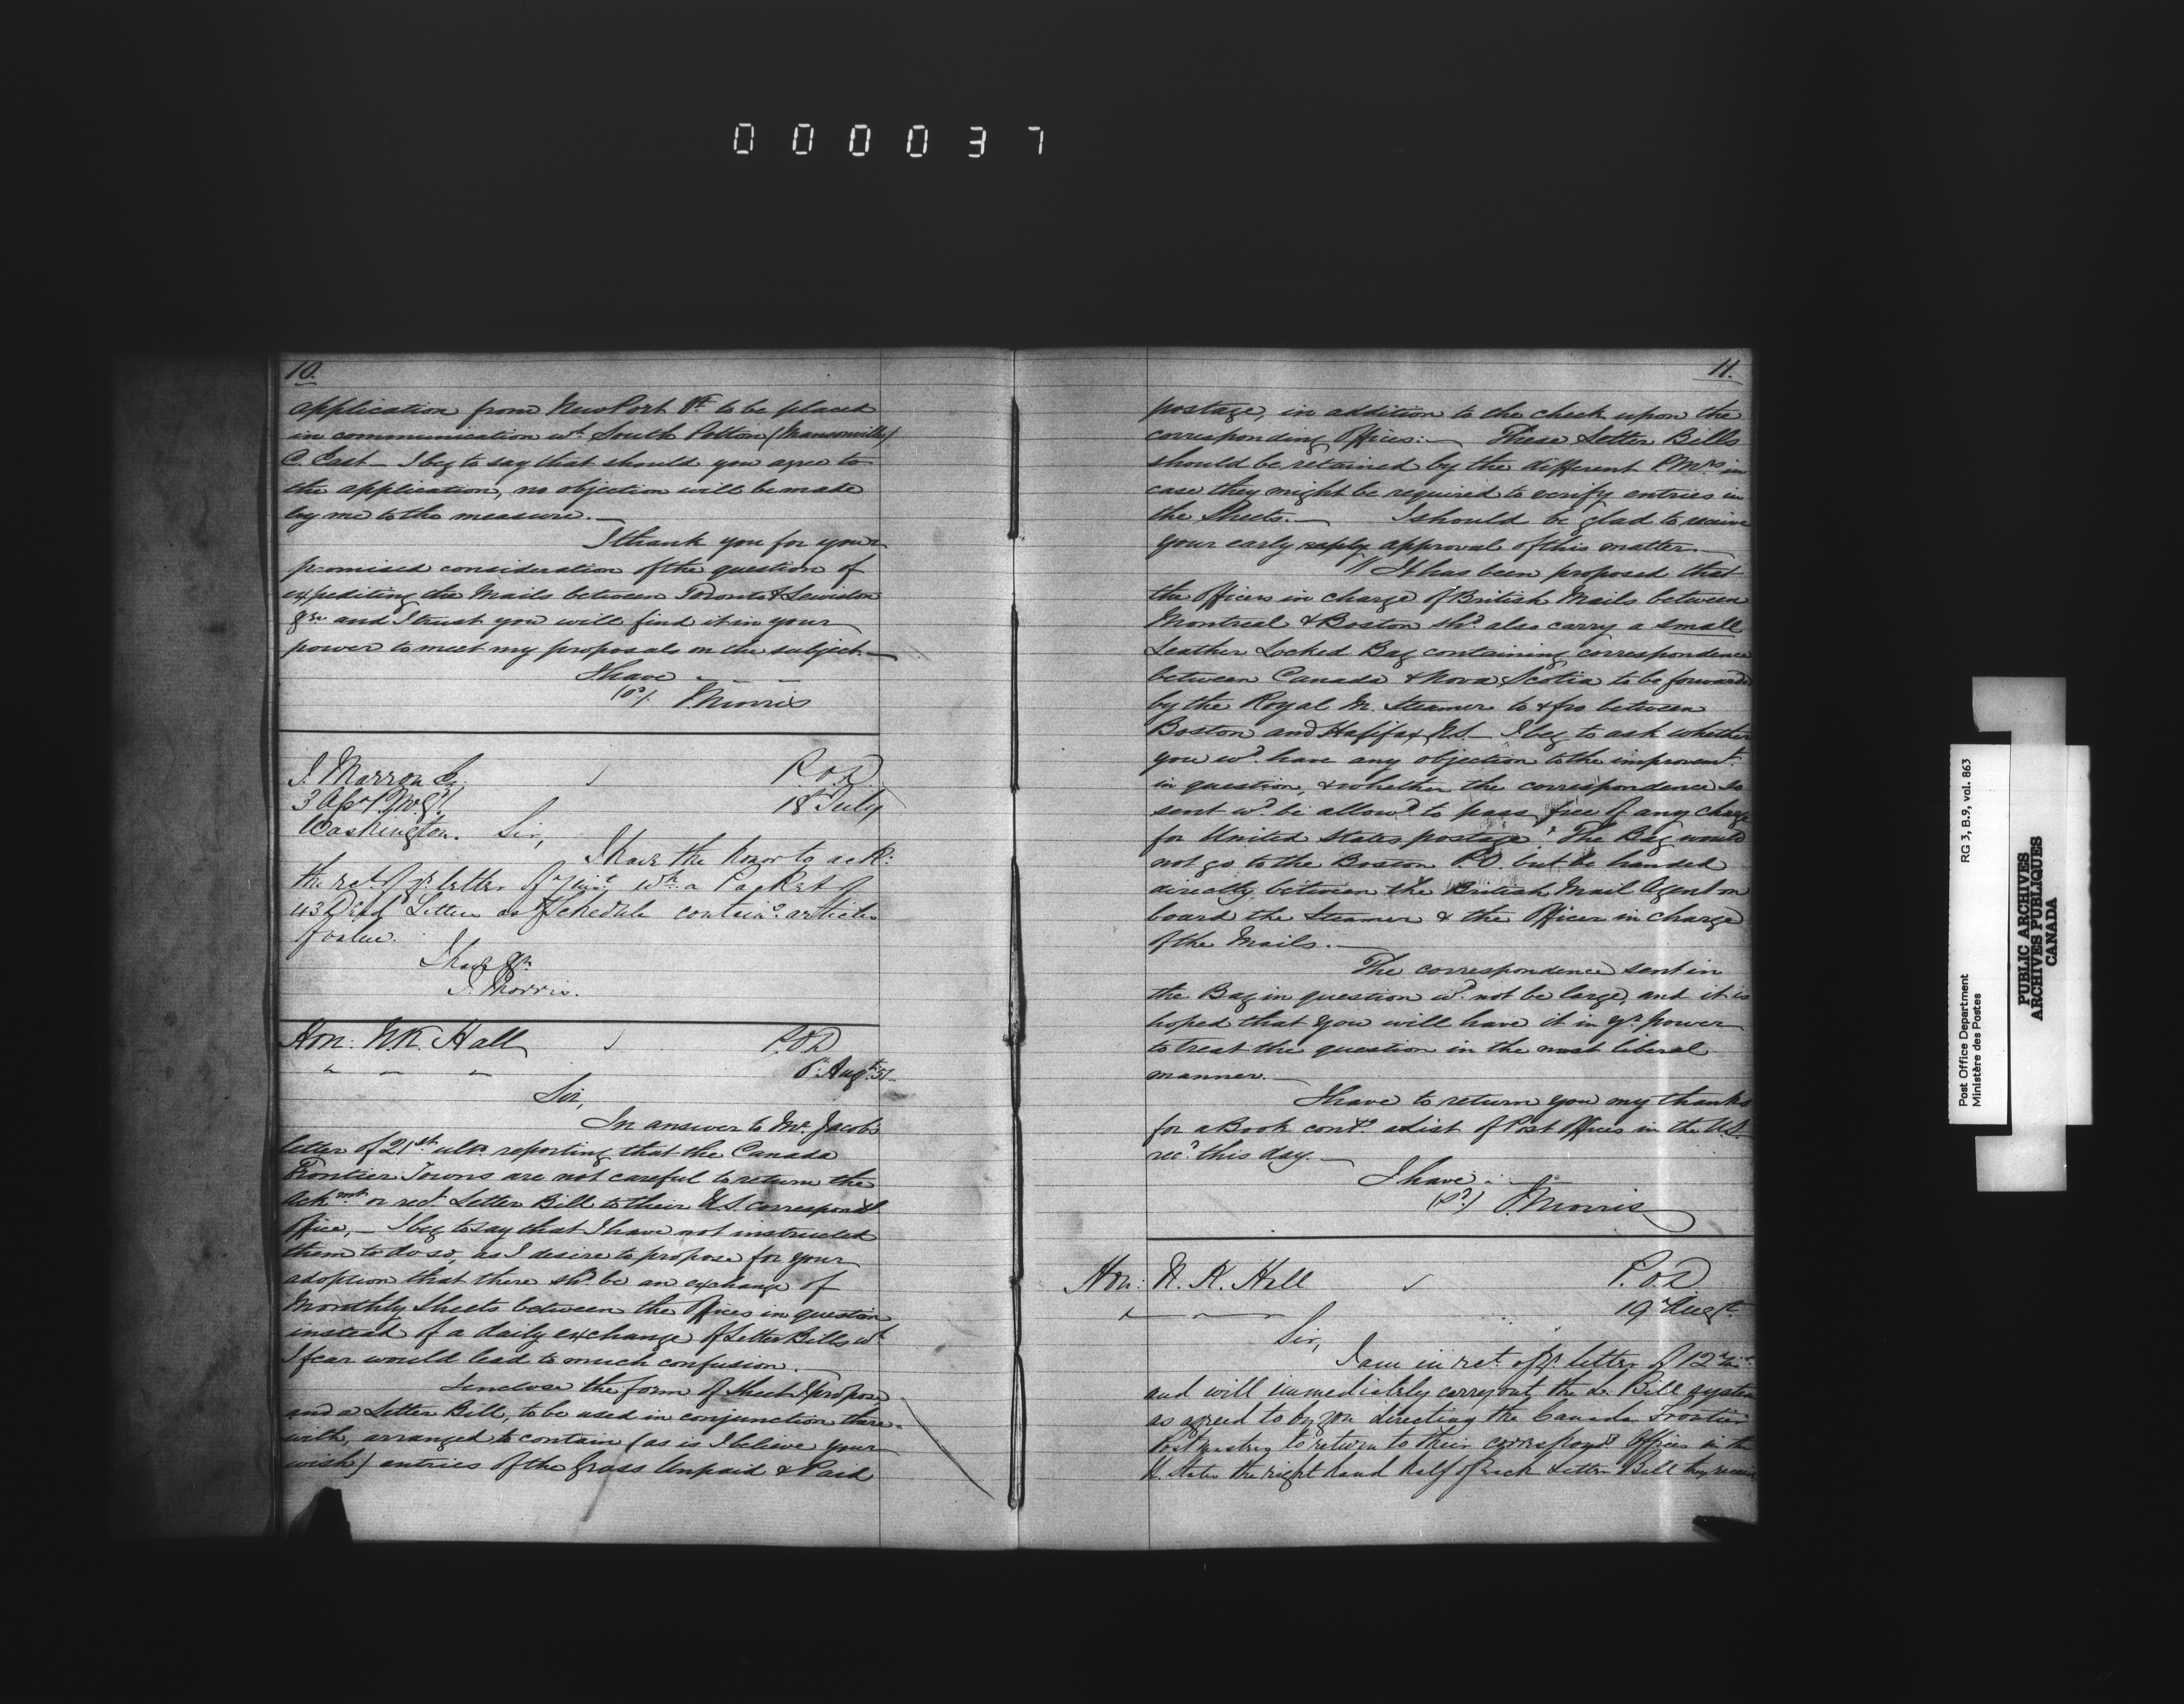 000037
10.
application from New Port Vt to be placed
in communication wt South Potton (Mansonville)
C. East — I beg to say that should you agree to
the application, no objection will be made
by me to the measure. —
I thank you for your
promised consideration of the question of
expediting the Mails between Toronto & Lewiston
&c and I trust you will find it in your
power to meet my proposals on the subject. —
I have
(sd) J. Morris
J. Marron Esq P.O.D
3 Asst P.M.Gl 18 July
Washington. Sir,
I have the honor to ack:
the rct. of yr. letter of 7 inst. wh. a Packet of
43 Dead Letters as Schedule containg. articles
of value.
I have &c
J. Morris.
Hon: N. K. Hall P.O.D
" " " Augt. 51
Sir,
In answer to Mr. Jacobs
letter of 21st ulto. reporting that the Canada
Frontier Towns are not careful to return the
Ackmt. or rect. Letter Bill to their U.S. correspondg
office, — I beg to say that I have not instructed
them to do so, as I desire to propose for your
adoption that there shd. be an exchange of
Monthly Sheets between the Offices in question
instead of a daily exchange of Letter Bills wh
I fear would lead to much confusion. —
I enclose the form of Sheet I propose,
and a Letter Bill, to be used in conjunction there-
with, arranged to contain (as is I believe your
wish) entries of the Gross Unpaid & Paid
11.
postage, in addition to the check upon the
corresponding Offices: — These Letter Bills
should be retained by the different P.Mrs in
case they might be required to verify entries in
the Sheets. — I should be glad to receive
your early reply approval of this matter. —
" It has been proposed that
the Officers in charge of British Mails between
Montreal & Boston shd. also carry a small
Leather Locked Bag containing correspondence
between Canada & Nova Scotia to be forwarded
by the Royal M. Steamer to & fro between
Boston and Halifax N.S — I beg to ask whether
you wd. have any objection to the improvemt.
in question, & whether the correspondence so
sent wd. be allowd to pass free of any charge
for United States postage? The Bag would
not go to the Boston P.O. but be handed
directly between the British Mail Agent on
board the Steamer & the Officer in charge
of the Mails. —
The correspondence sent in
the Bag in question wd. not be large, and it is
hoped that you will have it in yr. power
to treat the question in the most liberal
manner. —
I have to return you my thanks
for a Book contg. a List of Post Offices in the U.S.
recd. this day. —
I have
(sd) J. Morris
Hon: N. K. Hall P.O.D
" " " 19 Augt.
Sir,
I am in rct. of yr. letter of 12 inst.
and will immediately carry out the Lr. Bill system
as agreed to by you directing the Canada Frontier
Postmasters to return to their correspondg Offices in the
U. States the right hand half of each Letter Bill they receive
Post Office Department
Ministère des Postes
RG 3, B.9, vol. 863
PUBLIC ARCHIVES
ARCHIVES PUBLIQUES
CANADA